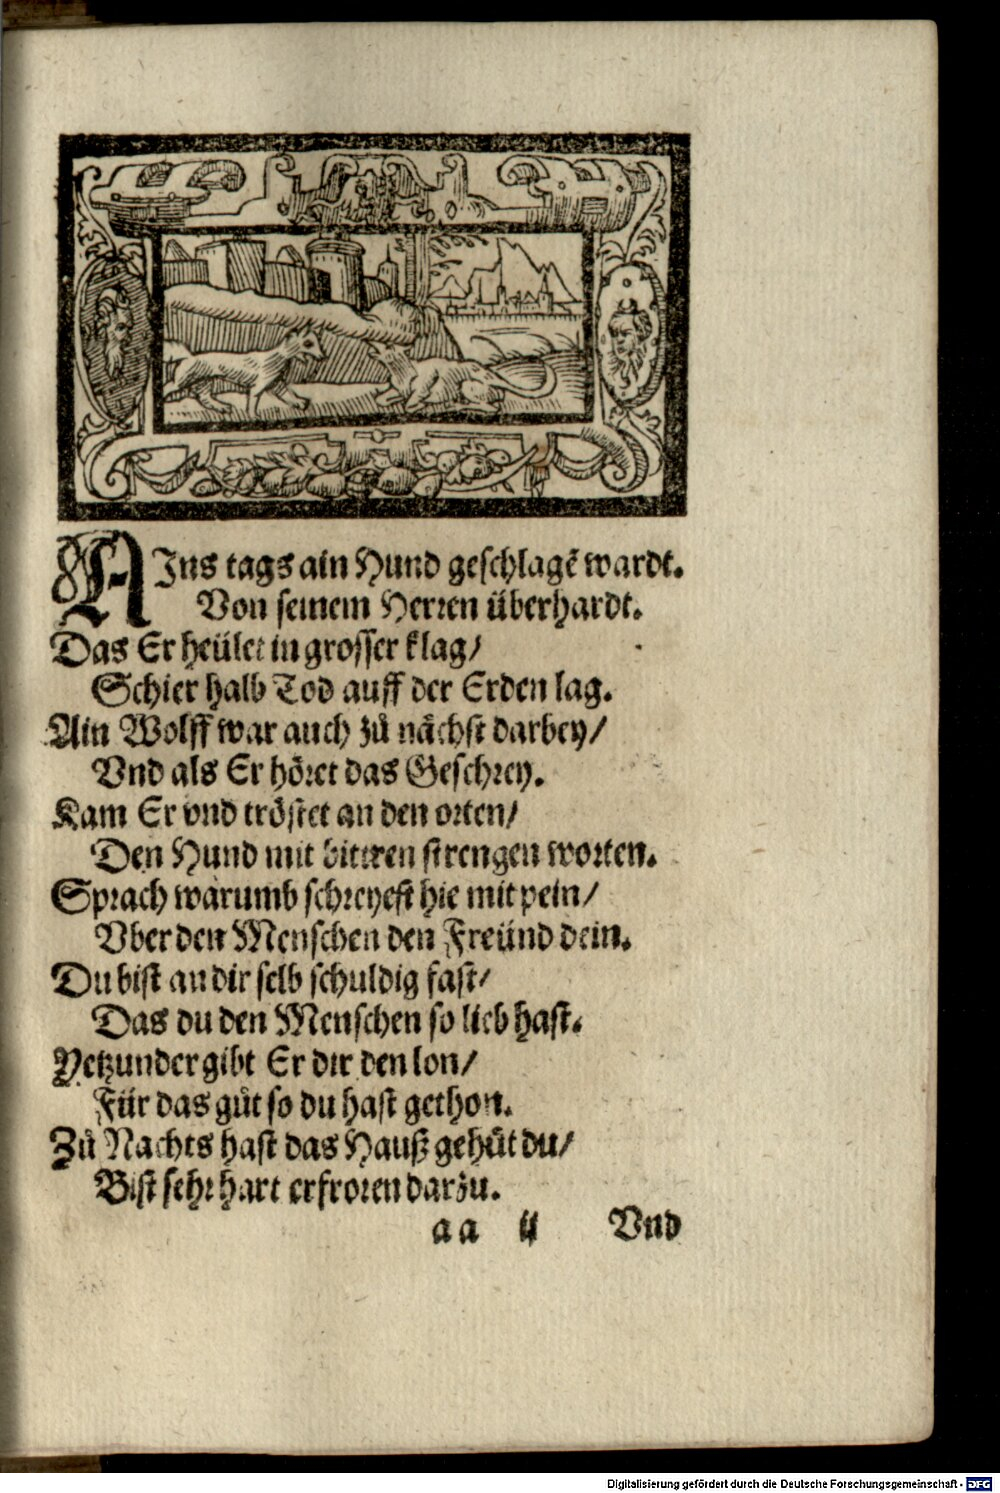 AIns tags ain Hund geschlagẽ wardt.
Von seinem Herren überhardt.
Das Er heület in grosser klag/
Schier halb Tod auff der Erden lag.
Ain Wolff war auch zů nächst darbey/
Vnd als Er höret das Geschrey.
Kam Er vnd tröstet an den orten/
Den Hund mit bittren strengen worten.
Sprach warumb schreyest hie mit pein/
Vber den Menschen den Freünd dein.
Du bist an dir selb schuldig fast/
Das du den Menschen so lieb hast.
Yetzunder gibt Er dir den lon/
Für das gůt so du hast gethon.
Zů Nachts hast das Hauß gehüt du/
Bist sehr hart erfroren darzu.
aa ij Vnd
Digitalisierung gefördert durch die Deutsche Forschungsgemeinschaft - DFG